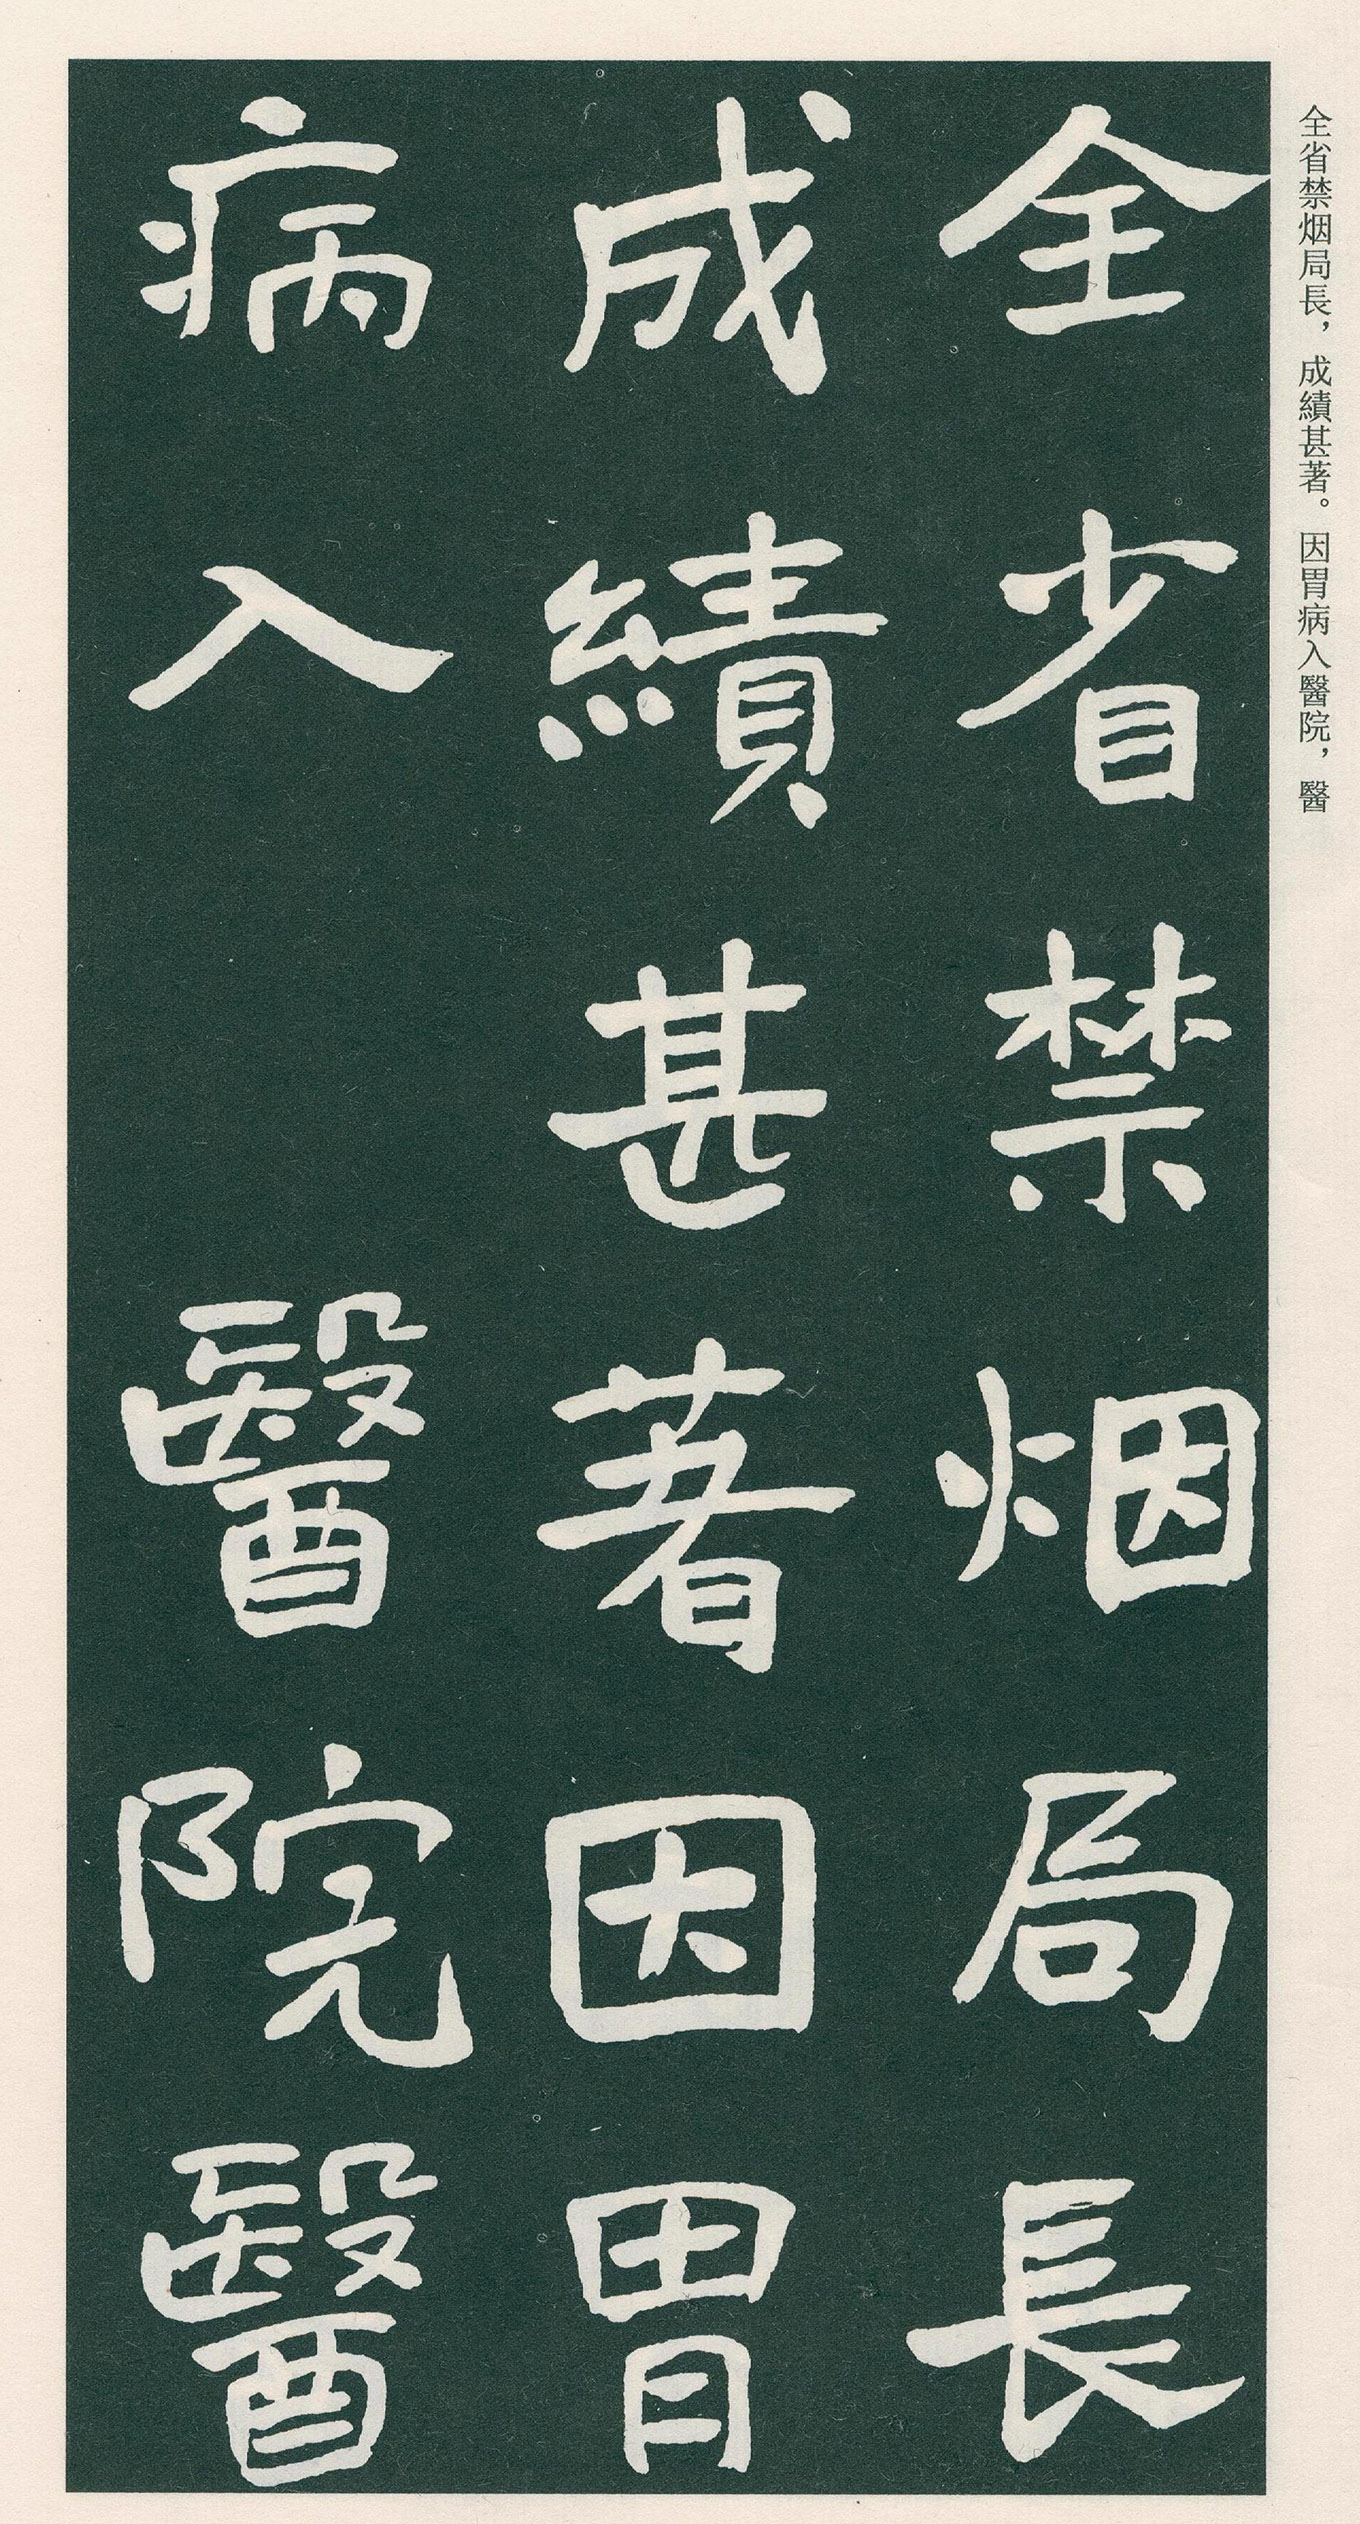 全省禁烟局長，成績甚著。因胃病入醫院，醫
全省禁烟局長
成績甚著因胃
病入醫院醫